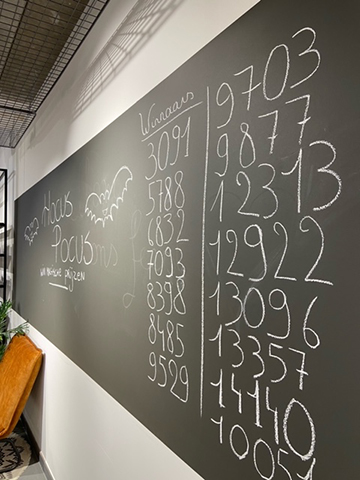 Hocus
Pocus
win magische prijzen
Winnaars
3091
5788
6832
7093
8398
8485
9529
9703
9877
12313
12922
13096
13357
14140
10051